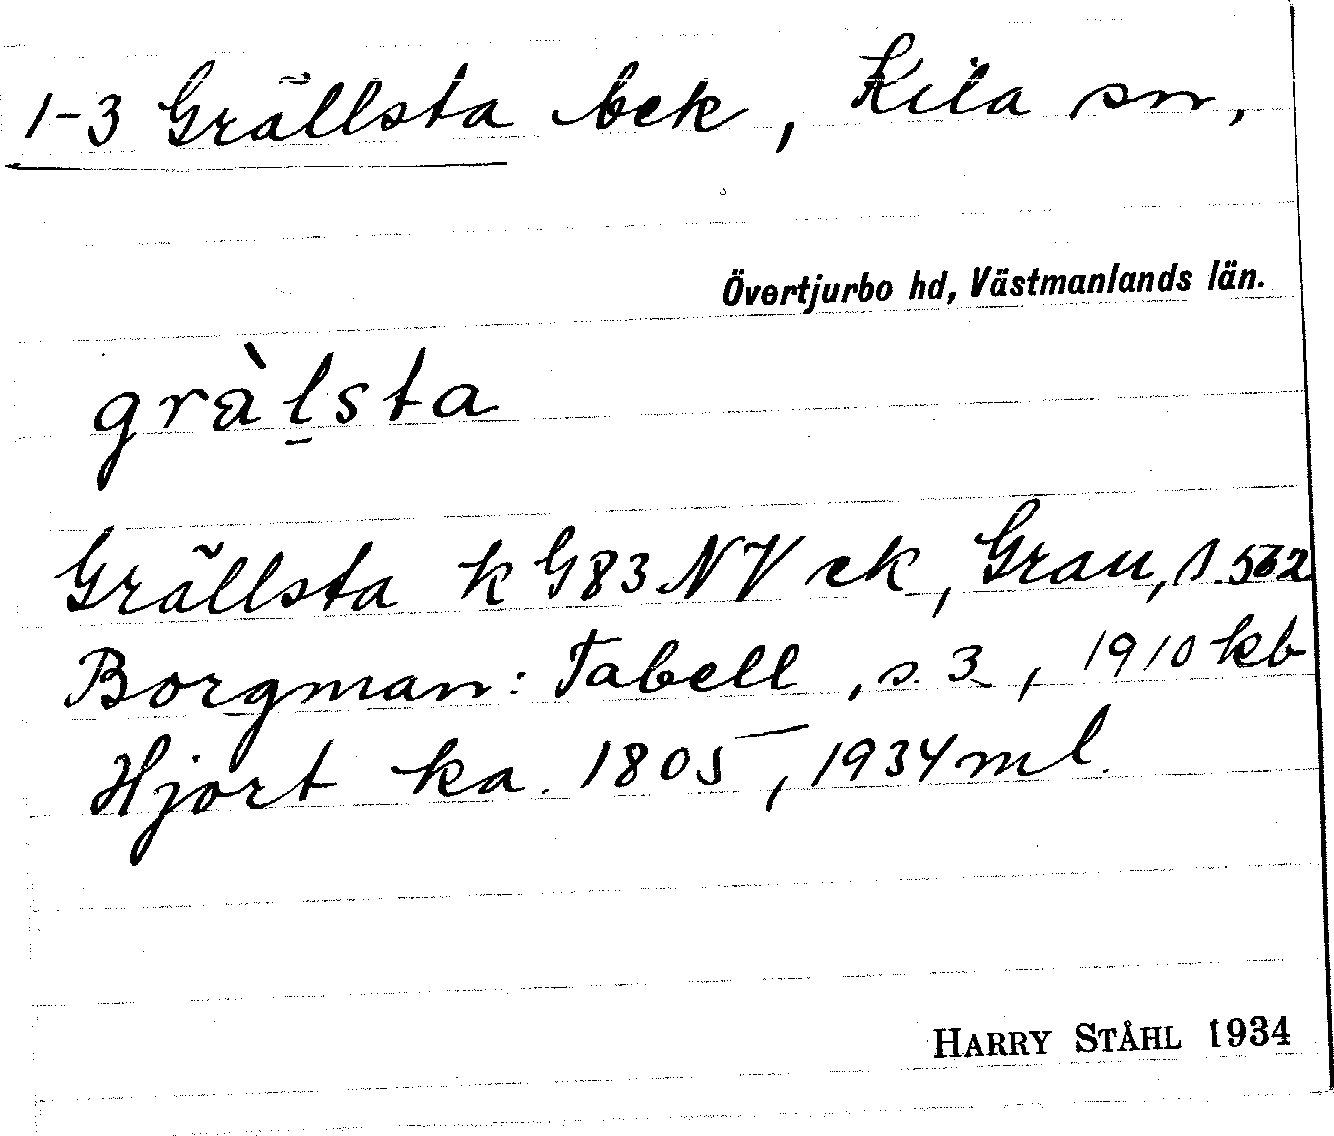 1-3 Grällsta bek, Kila sn,
Övertjurbo hd, Västmanlands län.
grä̀l̠sta
Grällsta k G83 NV ek, Grau, 1562
Borgman: Tabell, s. 3, 1910 kb
Hjort ka. 1805, 1934 ml.
HARRY STÅHL 1934